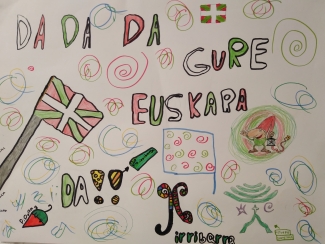 DA DA DA
GURE
EUSKARA
DA!!
irribarra